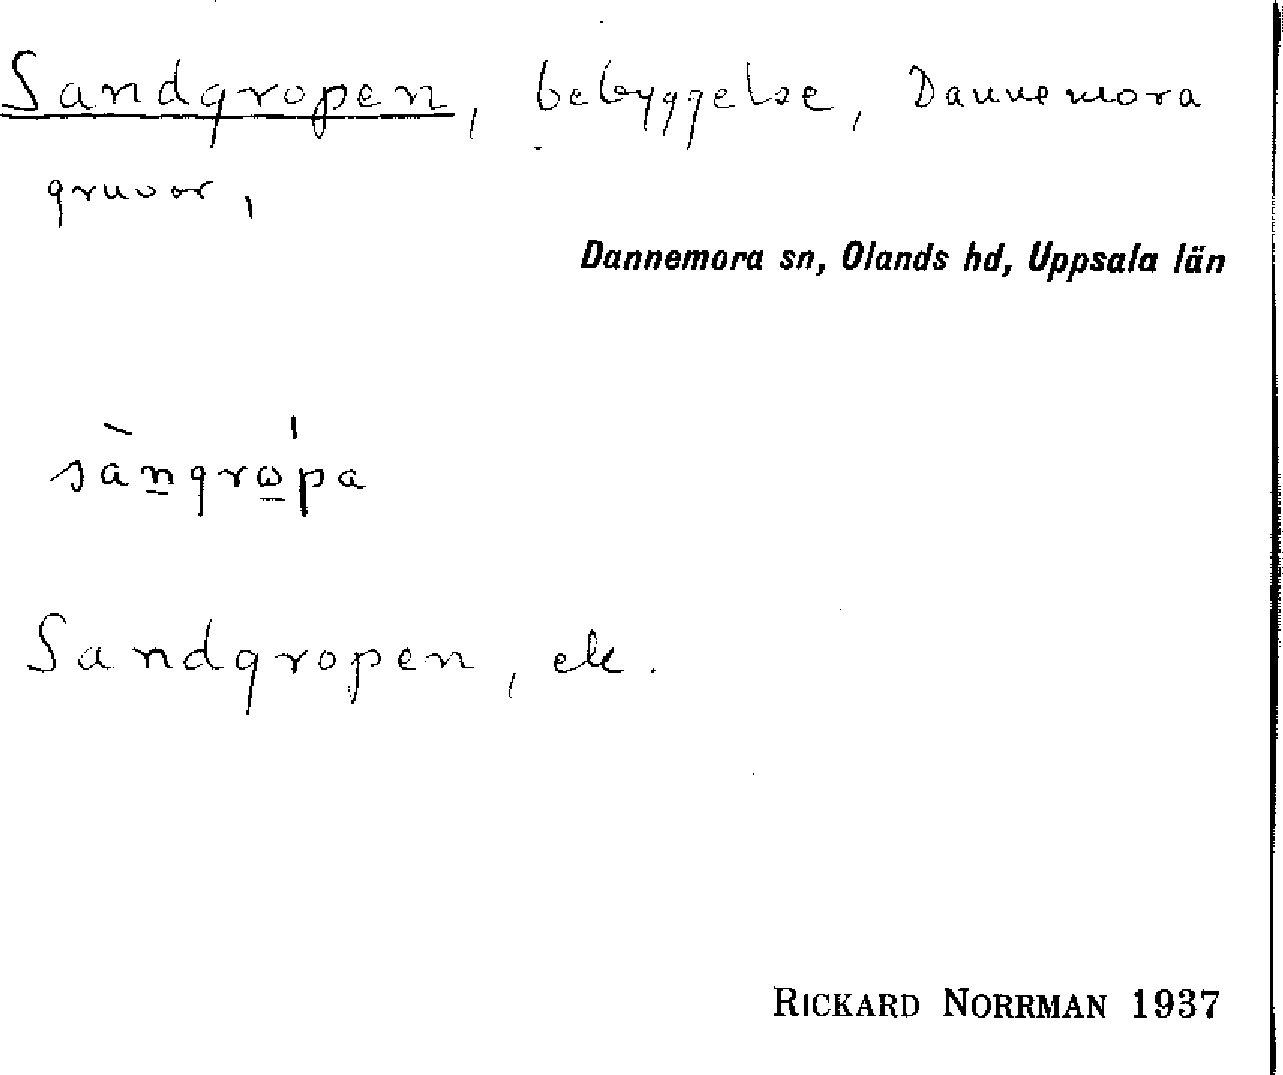 Sandgropen, bebyggelse, Dannemora
gruvor,
Dannemora sn, Olands hd, Uppsala län
sàn̲grω̲̍pa
Sandgropen, ek.